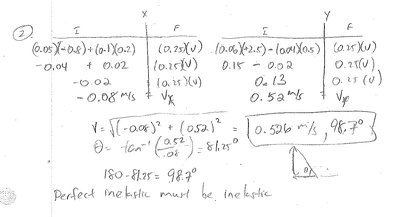 ②
X
Y
I F
I F
(0.05)(-0.8)+(0.1)(0.2) (0.25)(V)
(0.06)(+2.5)-(0.04)(0.5) (0.25)(V)
-0.04 + 0.02 (0.25)(V)
0.15 - 0.02 0.25(V)
-0.02 (0.25)(V)
0.13 0.25(V)
-0.08 m/s Vx
0.52 m/s Vy
V = √(-0.08)² + (0.52)² = 0.526 m/s, 98.7°
θ = tan⁻¹(0.52/.08) = 81.25°
180 - 81.25 = 98.7°
θ
Perfect inelastic must be inelastic